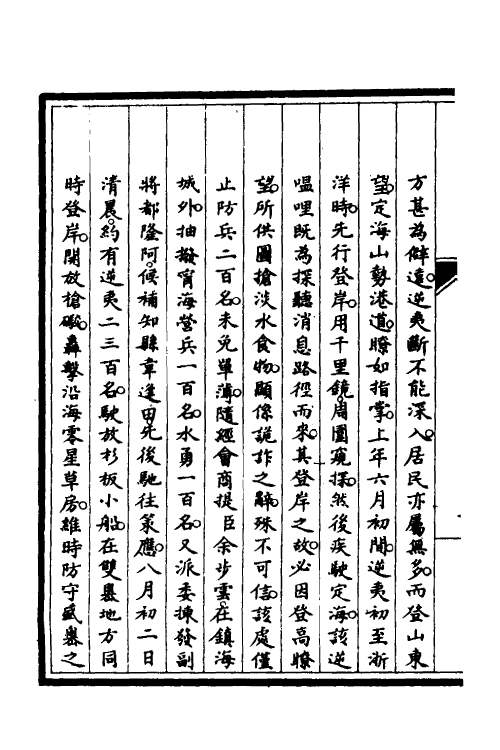 方甚為僻遠。逆夷斷不能深入。居民亦屬無多。而登山東
望。定海山勢港道。瞭如指掌。上年六月初間。逆夷初至浙
洋時。先行登岸。用千里鏡。周圍窺探。然後疾駛定海。該逆
嗢哩既為探聽消息路徑而來。其登岸之故。必因登高瞭
望。所供圖搶淡水食物。顯係詭詐之辭。殊不可信。該處僅
止防兵二百名。未免單薄。隨經會商提臣余步雲。在鎮海
城外。抽撥甯海營兵一百名。水勇一百名。又派委揀發副
將都隆阿。候補知縣韋逢田。先後馳往策應。八月初二日
清晨。約有逆夷二三百名。駛放杉板小船。在雙嶴地方同
時登岸。開放槍礮。轟擊沿海零星草房。維時防守盛嶴之